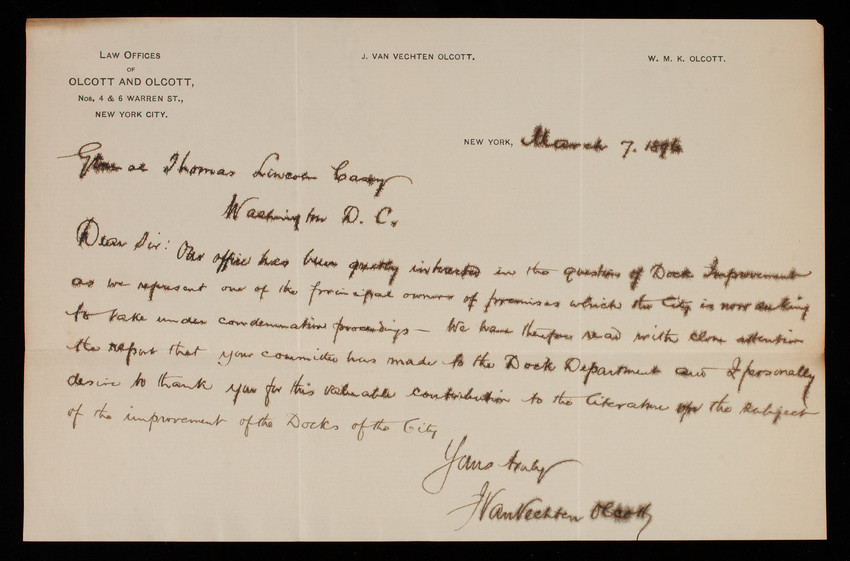 LAW OFFICES
OF
OLCOTT AND OLCOTT,
Nos. 4 & 6 WARREN ST.,
NEW YORK CITY.
J. VAN VECHTEN OLCOTT.
W. M. K. OLCOTT.
NEW YORK, March 7. 1896
General Thomas Lincoln Casey
Washington D. C.
Dear Sir: Our office has been greatly interested in the question of Dock Improvement
as we represent one of the principal owners of premises which the City is now asking
to take under condemnation proceedings — We have therefore read with close attention
the report that your committee has made to the Dock Department and I personally
desire to thank you for this valuable contribution to the literature upon the subject
of the improvement of the Docks of the City
Yours truly
J Van Vechten Olcott